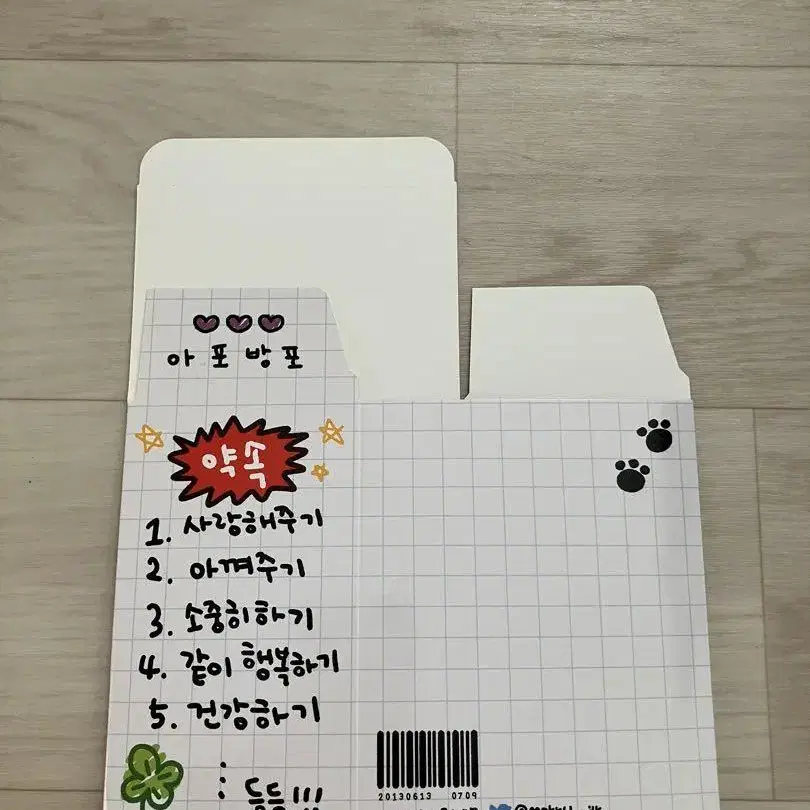 아포방포
약속
1. 사랑해주기
2. 아껴주기
3. 소중히하기
4. 같이 행복하기
5. 건강하기
등등!!!
20130613 0709